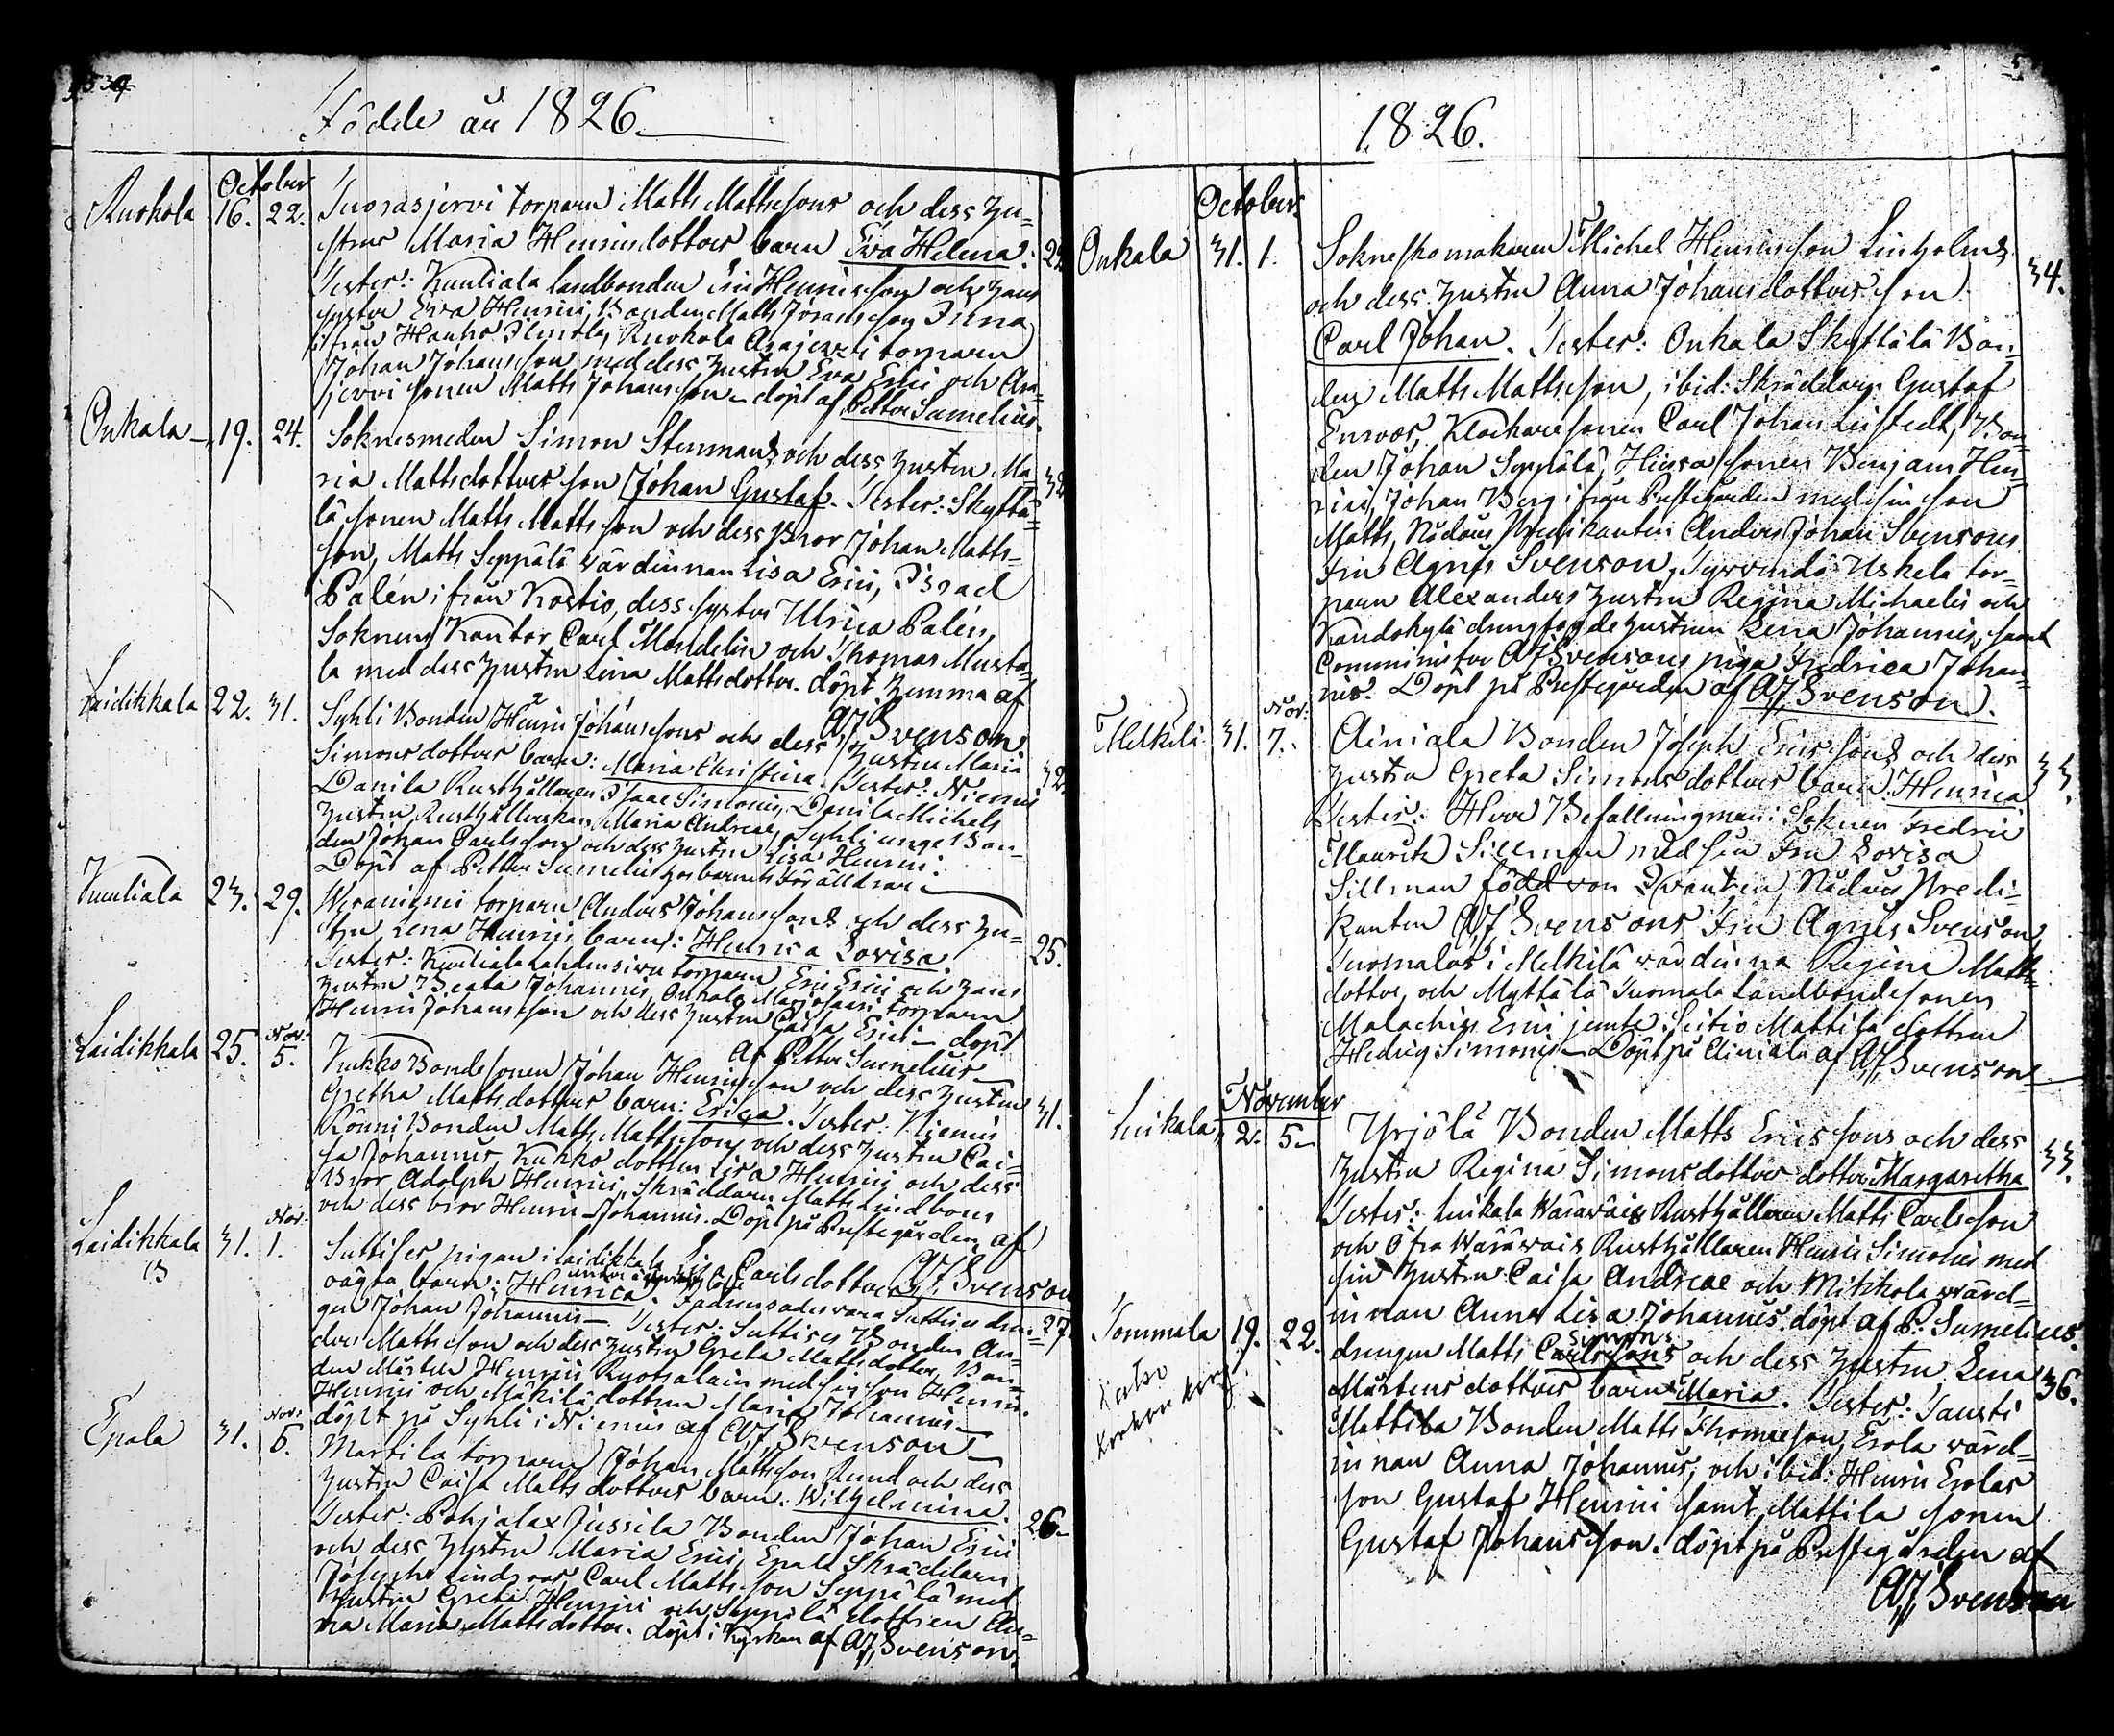 Födde år 1826.
October
Ruokola 16. 22. Tuorasjervi torparn Matts Mattssons och dess hu=
strus Maria Henricsdotters barn Eva Helena.
Tester: Kuuliala landbonden Eric Henricsson och hans
syster Eva Henrici, Bonden Matts
ifrån Hauho Ruokola torparn
Johan Johansson med dess hustru Eva Erici och
jervi sonen Matts Johansson döpt af Petter Sumelius.
Onkala 19. 24. Soknesmeden Simon Stenmans och dess hustru Ma= 32
ria Mattsdotters son Johan Gustaf. Tester: Skyttä=
lä sonen Matts Mattsson och dess Bror Johan Matts=
son, Matts Seppälä värdinnan Lisa Erici, Israel
Palén ifrån Kostio, dess syster Ulrica Palén,
Soknens Kantor Carl Mendelin och Thomas Musta=
la med dess hustru Lena Mattsdotter. döpt hemma af
AJ Svenson.
Laidikkala 22. 31. Syhli Bonden Henric Johanssons och dess hustru Maria
Simonsdotters barn: Maria Christina. Tester: Niemis 32
Danila Rusthållaren Isaac Simonis, Danila Michels
hustru Rusthållerskan Maria Andreae, Syhli unge Bon=
den Johan Carlsson och dess hustru Lisa Henrici.
Döpt af Petter Sumelius hos barnets Föräldrar
Kuuliala 23. 29. torparn Anders Johanssons och dess hu=
stru Lena Henrici barn: Henrica Lovisa. 25.
Tester: Kuuliala torparn Eric Erici och hans
hustru Beata Johannis, Onkala torparn
Henric Johansson och dess hustru Caisa Erici döpt
af Petter Sumelius
Nov:
Laidikkala 25. 5. Kukko Bondesonen Johan Henricsson och dess hustru
Gretha Mattsdotters barn: Erica. Tester: Niemis 31.
Rönni Bonden Matts Mattsson och dess hustru Cai=
sa Johannis, Kukko dottren Lisa Henrici och dess
Bror Adolph Henrici, Skräddarn Matts Lindboms
och dess bror Henric Johannis. Döpt på Prestegården af
AJ Svenson
Nov:
Laidikkala 31. 1. Suttises pigan i Laidikkala Lisa Carlsdotters
oägta barn: Henrica. Fadren Suttises drän= 27.
gen Johan Johannis. Tester: Suttises Bonden An=
ders Mattsson och dess hustru Greta Mattsdotter, Bon=
den Mårten Henrici med sin son Henric
Henrici och Mäkilä dottren Maria Johannis
döpt på Syhli i Niemis af AJ Svenson
Nov:
Epala 31. 5. Marttila torparn Johan Mattsson och dess
hustru Caisa Mattsdotters barn: Wilhelmina.
Tester: Pohjalax Jussila Bonden Johan Erici 26.
och dess hustru Maria Erici, Epala Skräddarn
Joseph Lindroos, Carl Mattsson Seppälä med
hustru Greta Henrici och Seppälä dottren An=
na Maria Mattsdotter. döpt i Kyrkan af AJ Svenson.
1826.
October
Onkala 31. 1. Sokneskomakaren Michel Henricsson Linholms 34.
och dess hustru Anna Johansdotters son
Carl Johan. Tester: Onkala Skyttälä Bon=
den Matts Mattsson, ibid: Skräddarn Gustaf
Enroos, Klockaresonen Carl Johan Leistedt, Bon=
den Johan Seppälä, Hiersa sonen Benjam Hen=
rici, Johan Berg ifrån Prestegården med sin son
Matts, Nådårs Predikanten Anders Johan Svensons
Fru Agnes Svenson, Uskela tor=
parn Alexanders hustru Regina Michaelis och
Kandokylä drängfogde hustrun Lena Johannis, samt
Comminister AJ Svensons piga Fredrica Johan=
nis. Döpt på Prestegården af AJ Svenson.
Nov:
Melkilä 31. 7. Ainiala Bonden Joseph Ericssons och dess 33.
hustru Greta Simonsdotters barn: Henrica
Tester: Herr Befallningsman i Soknen Fredric
Mauritz Sillman med sin Fru Lovisa
Sillman född von Qvanten, Nådårs Predi=
kanten AJ Svensons Fru Agnes Svenson,
Tuomalas i Melkilä värdinna Regina Matts=
dotter, och Myttälä Tuomala Landbondesonen
Malachias Erici jemte Seitio Mattisa dottren
Hedvig Simonis. Döpt på Ainiala af AJ Svenson
November
Luikala 2. 5. Yrjölä Bonden Matts Ericssons och dess
hustru Regina Simonsdotters dotter Margaretha 33.
Tester: Luikala Rusthållaren Matts Carlsson
och Rusthållaren Henric Simonis med
sin hustru Caisa Andreae och Mikkola värd=
innan Anna Lisa Johannis. döpt af P: Sumelius.
Tommola 19. 22. drengen Matts Carlssons Simons och dess hustru Lena 36.
Katso
Mårtensdotters barn Maria. Tester: Tausti
Mattila Bonden Matts Thomasson, Erola värd=
innan Anna Johannis, och ibid: Henric Erolas
son Gustaf Henrici samt Mattila sonen
Gustaf Johansson. döpt på Prestegården af
AJ Svenson